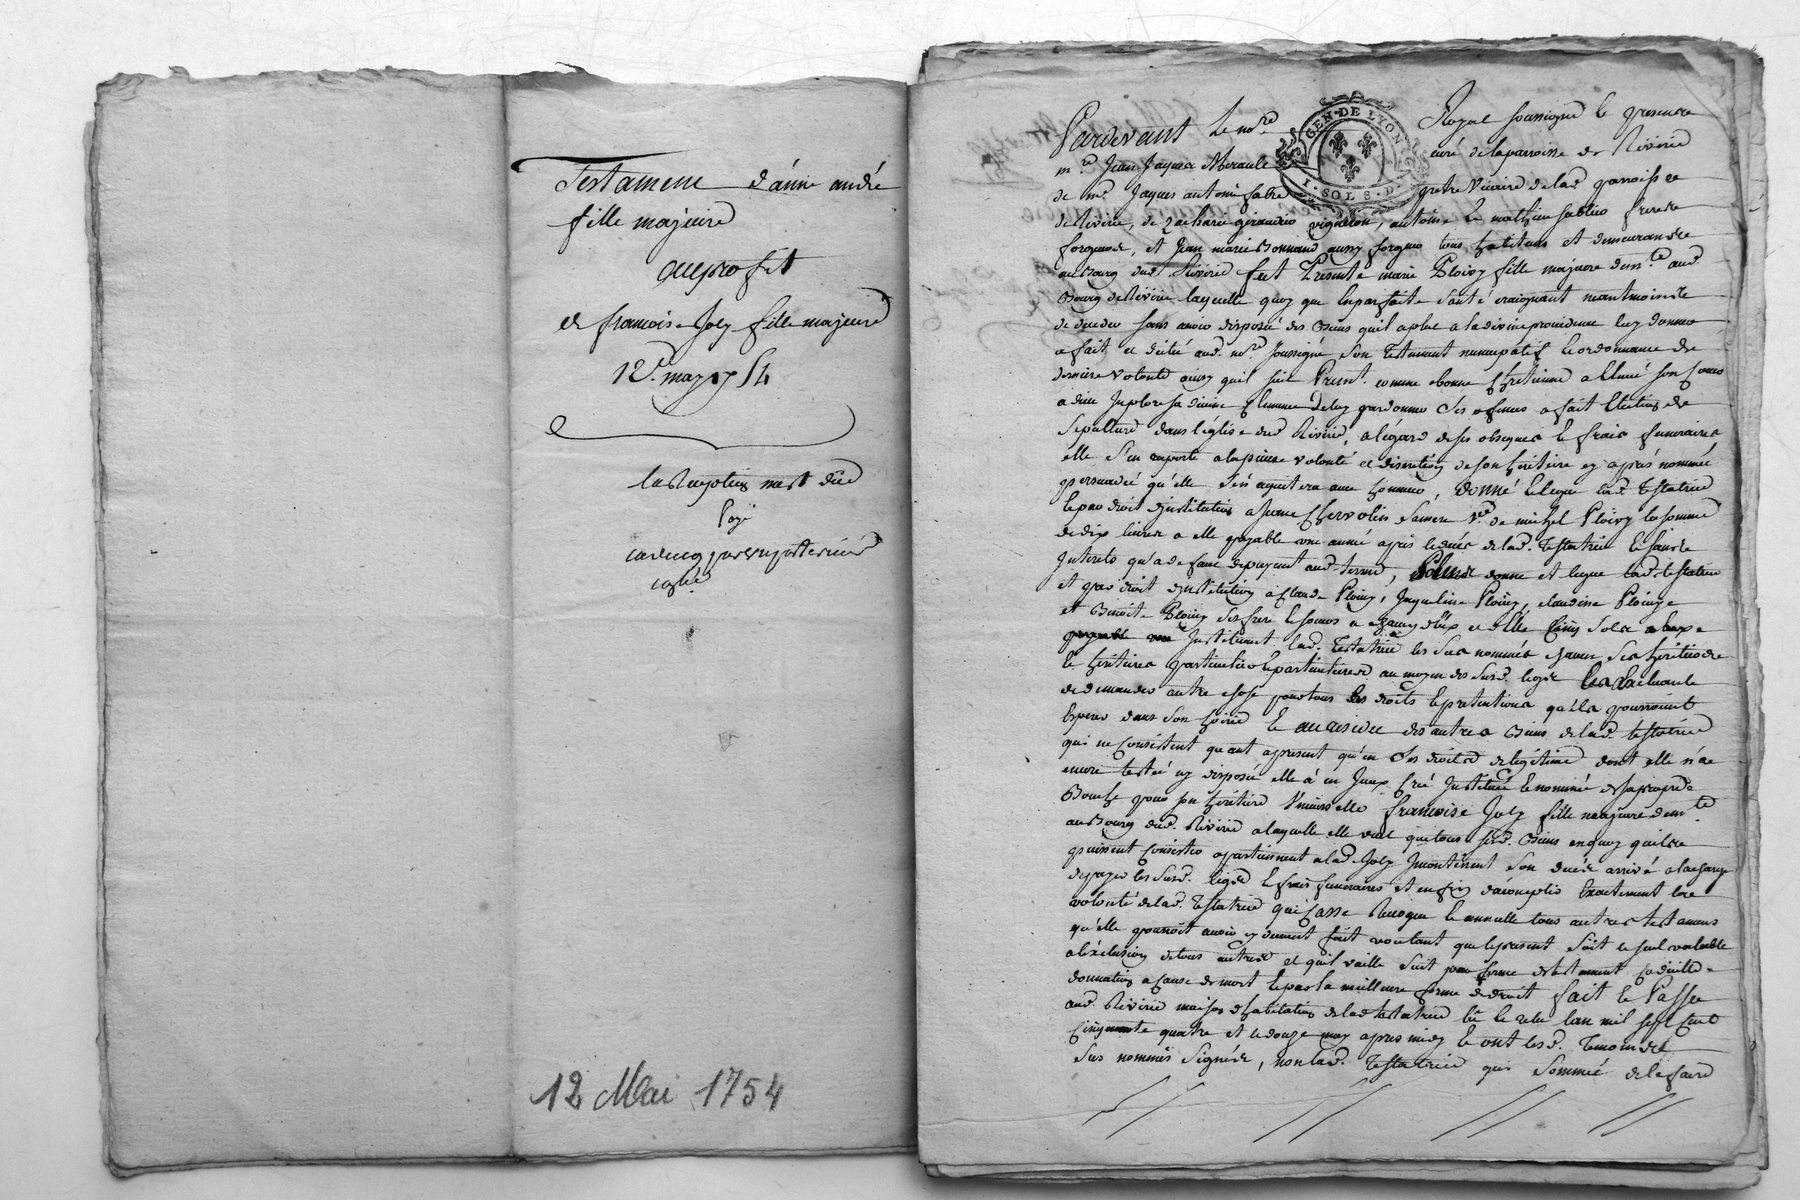 Testament d'anne andré
fille majeure
au profit
de francoise Joly fille majeure
12e. may 1754
la Reception n'est düe
Payé
12 Mai 1754
GEN. DE LYON
I. SOLS. D.
Pardevant le nore. Royal soussigné le presence
mre. Jean Jaques curé de la parroisse de Riverie
de mre. Jaques antoine fabre pretre Vicaire de lad. parroisse
de Riverie, de Zacharie vigneron, antoine & mathieu freres
forgeurs, et Jean marie Bonnand aussy forgeur tous habitans et demeurants
au Bourg dud. Riverie fut Presente marie Ploivy fille majeure demte. aud.
Bourg de Riverie laquelle quoy que en parfaite santé craignant neantmoins
de deceder sans avoir disposé des Biens qu'il a plut a la divine providence luy donner
a fait et dicté aud. nore. soussigné son testament nuncupatif & ordonnance de
derniere volonté ainsy qu'il suit Premt. comme bonne Chretienne a Elevé son Coeur
a dieu Implore sa divine Clemence de luy pardonner ses ofences a fait Election de
sepulture dans l'eglise dud. Riverie, a l'égard de ses obseques & frais funeraires
elle s'en raporte a la pieuse volonté et discretion de son heritiere cy après nommée
persuadée qu'elle s'en aquitera avec honneur, donne & legue lad. testatrice
& par droit d'institution a Jeanne Chervolin sa mere Ve. de michel Ploivy la somme
de dix livres a elle payable une année après le décès de lad. testatrice & sans
Interets qu'a defaut de payement aud. terme, donne et legue lad. testatrice
et par droit d'institution a Claude Ploivy, Jaqueline Ploivy, claudine Ploivy
et Benoit Ploivy ses frere & soeurs a chacun d'eux et d'elle Cinq sols
Instituant lad. testatrice les sus nommés chacun ses heritiers
& heritieres particuliers & particulieres au moyen des susd. legs
de demander autre chose pour tous les droits & pretentions qu'ils pourroient
Esperer dans son hoirie & au residu des autres Biens de lad. testatrice
qui ne Consistent quant apresent qu'en ses droits de legitime dont elle n'a
encore testé ny disposé elle a en Iceux Créé Institué & nommé de sa propre
Bouche pour son heritiere Universelle francoise Joly fille majeure demte.
au Bourg dud. Riverie a laquelle elle veut que tous sesd. Biens en quoy qu'ils
puissent Consister apartiennent a lad. Joly Incontinent son décès arrivé a la charge
de payer les susd. legs & frais funeraires et enfin d'acomplir Exactement la
volonté de lad. testatrice qui Casse Revoque & annulle tous autres testamens
qu'elle pourroit avoir cy devant fait voulant que le present soit le seul valable
a l'éxclusion de tous autres et qu'il vaille soit par forme de testament Codicille
donnation a Cause de mort & par la meilleure forme de droit fait & Passé
aud. Riverie maison d'habitation de lad. testatrice lu & relu lan mil sept Cent
Cinquante quatre et le douze may apres midy & ont lesd. temoins
sus nommés signés, non lad. testatrice qui sommée de le faire